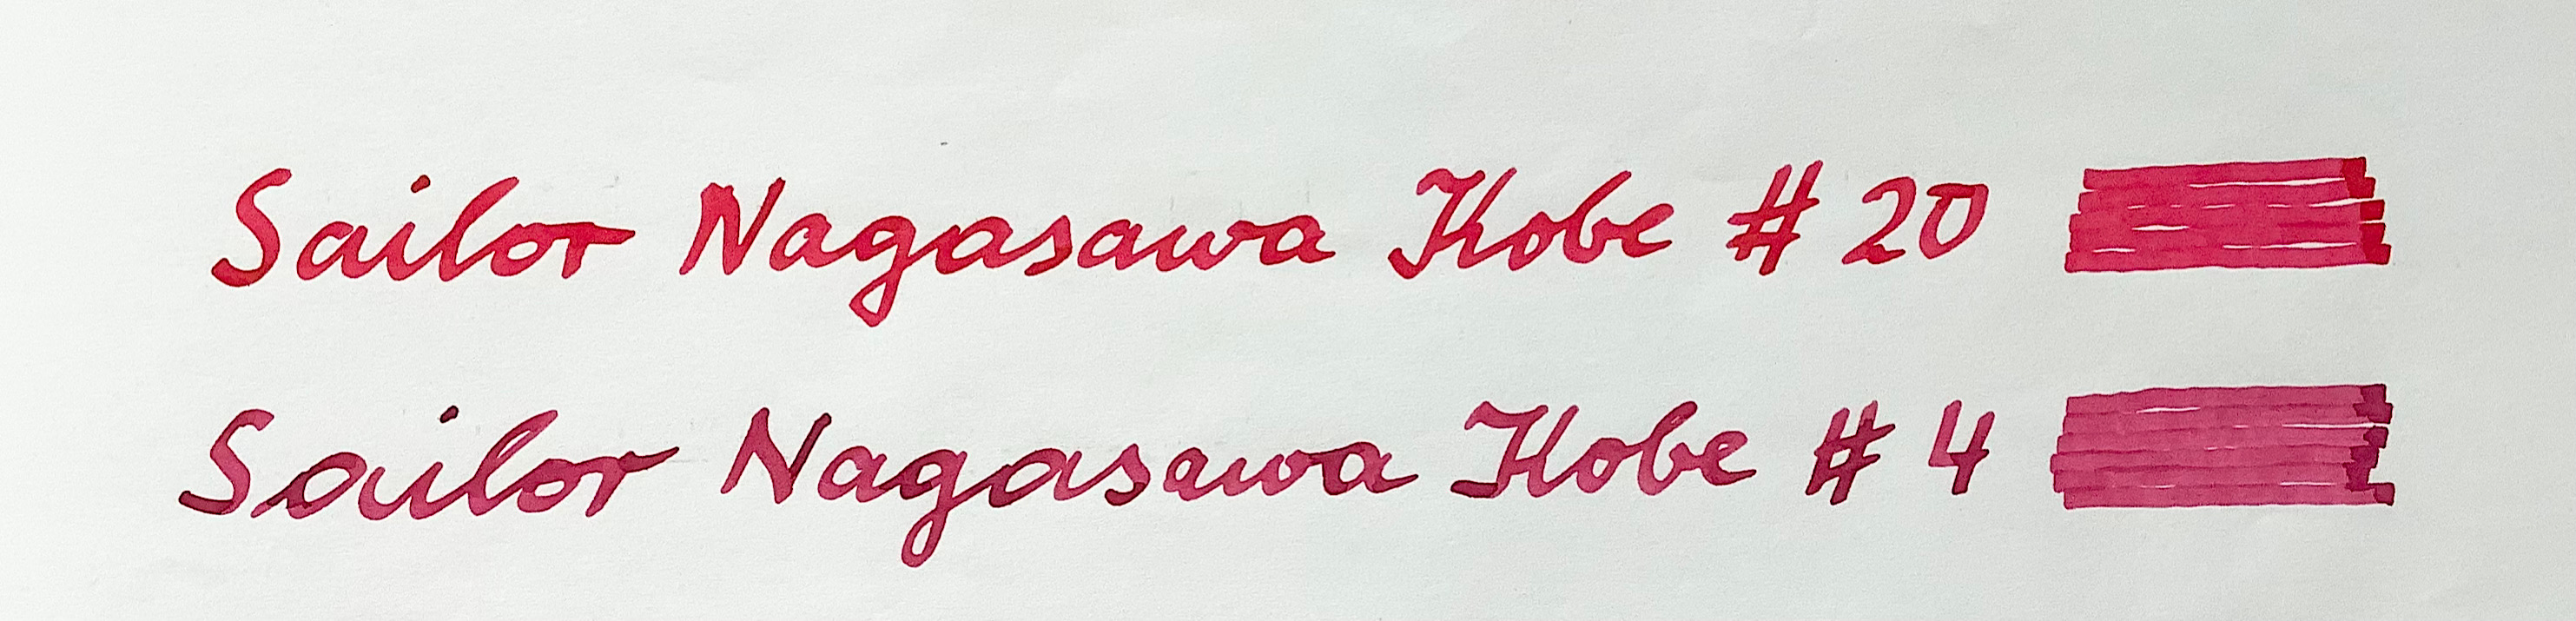 Sailor Nagasawa Kobe # 20
Sailor Nagasawa Kobe # 4